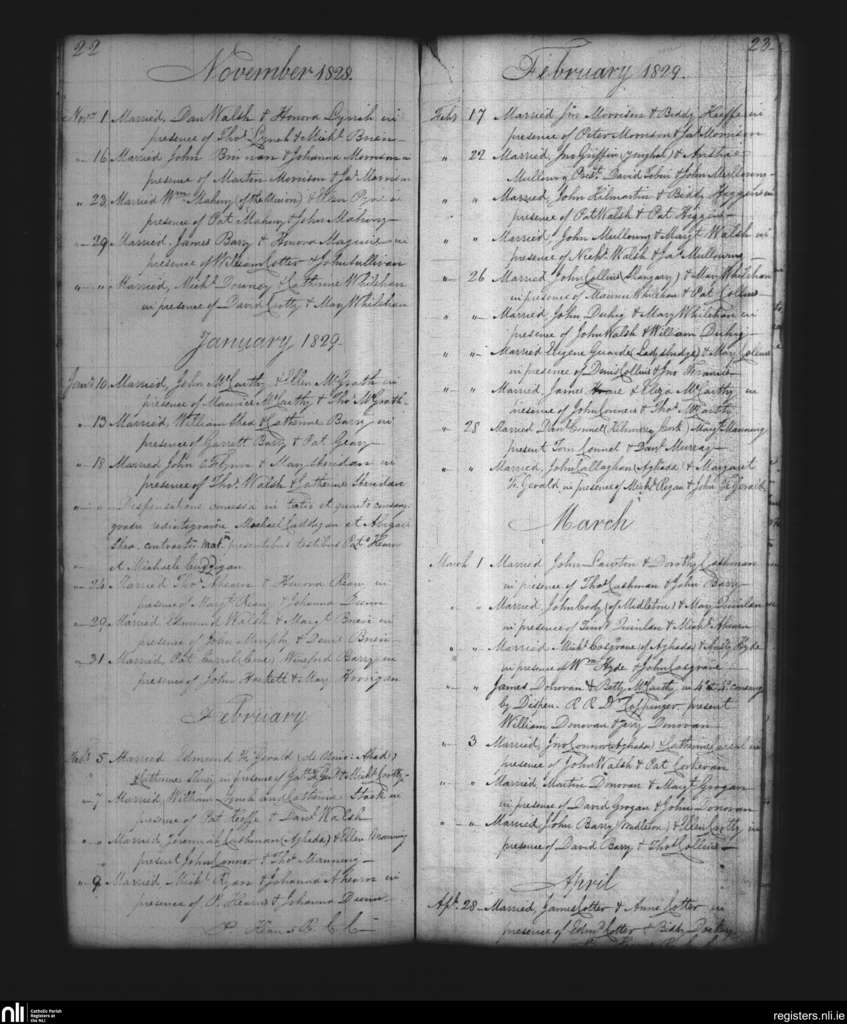 22
November 1828.
Novr 1 Married, Dan Walsh & Honora Lynch in
presence of Thos Lynch & Michl Brien
" 16 Married John & Johanna Morrison in
presence of Martin Morrison & Jas Morrison
" 23 Married Wm Mahony (of the Union) & Ellen in
presence of Pat Mahony & John Mahony
" 29 Married, James Barry & Honora Maguire in
presence of William Cotter & John Sullivan
" " Married, Michl Downey & Catherine Whitehan
in presence of David Cotty & Mary Whitehan
January 1829
Jany 10 Married, John McCarthy & Ellen McGrath in
presence of Maurice McCarthy & Thos McGrath
" 13 Married, William Shea & Catherine Barry in
presence of Garrett Barry & Pat Geary
" 18 Married John & Mary Sheridan in
presence of Thos Walsh & Catherine Sheridan
" " Dispensatione concessa in tertio et quarto consang
Michael Caddigan et Abigail
Shea contracti matm presentibus testibus Patro Hearn
et Michaele Cuddigan
" 24 Married Thos Ahearn & Honora in
presence of Margt & Johanna
" 29 Married Edmund Walsh & Margt Brien in
presence of John Murphy & Danl Brien
" 31 Married, Pat & Winefred Barry in
presence of John Hackett & Mary
February
Feby 5 Married Edmund Fz Gerald
Catherine in presence of
" 7 Married, William and Catherine Stack in
presence of Pat Keeffe & Danl Walsh
" " Married, Jeremiah Cushman (Aghada) & Ellen Manning
present John Connor & Thos Manning
" 9 Married Michl Ryan & Johanna Ahearn in
presence of P. Hearn & Johanna
23
February 1829.
Feby 17 Married Jno Morrison & Biddy Keeffe in
presence of Peter Morrison & Jas Morrison
" 22 Married, Jno Griffin (Youghal) &
Mullowny David John & John Mullowny
" " Married, John Kilmartin & Biddy Higgins in
presence of Pat Walsh & Pat Higgins
" " Married, John Mullowny & Margt Walsh in
presence of Nichs Walsh & Jas Mullowny
" 26 Married John Collins & Mary Whitehan
in presence of Maurice Whitehan & Pat Collins
" Married, John Duhig & Mary Whitehan in
presence of John Walsh & William Duhig
" " Married Eugene (Ladysbridge) & Mary Collins
in presence of Denis Collins & Jno
" " Married, James & Eliza McCarthy in
presence of John Connors & Thos McCarthy
" 28 Married Danl Connel & Margt Manning
present Tom Connel & Danl Murray
" " Married, John Callaghan (Aghada) & Margaret
Fz Gerald in presence of Michl Ryan & John Fz Gerald
March
March 1 Married John Lawton & Dorothy Cushman
in presence of Thos Cushman & John Barry
" " Married, John Cody (of Midleton) & Mary Quinlan in
presence of Timy Quinlan & Michl Ahearn
" " Married Michl Cosgrave (of Aghada) & Hyde
in presence of Wm Hyde & John Cosgrave
" " James Donovan & Betty McCarthy in 4o et 4o consang
by Dispen. R R Dr Coppinger present
William Donovan & Jerry Donovan
" 3 Married, Jno Connor (Aghada) & Catherine in
presence of John Walsh & Pat Corkeran
" " Married, Martin Donovan & Margt Grogan
in presence of David Grogan & John Donovan
" " Married, John Barry (Midleton) & Ellen Cotty in
presence of David Barry & Thos Collins
April
Apl 28 Married, James Cotter & Anne Cotter in
presence of Edmd Cotter & Biddy
nli
Catholic Parish
Registers at
the NLI
registers.nli.ie